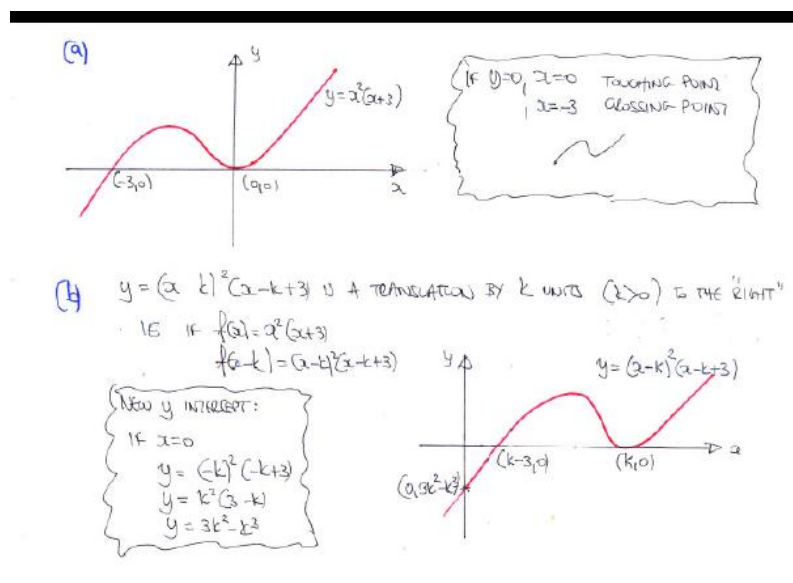 (a)
y
y=x²(x+3)
(-3,0)
(0,0)
x
IF y=0, x=0 TOUCHING POINT
, x=-3 CROSSING POINT
(b) y=(x k)²(x-k+3) IS A TRANSLATION BY k UNITS (k>0) TO THE "RIGHT"
IE IF f(x)=x²(x+3)
f(x-k)=(x-k)²(x-k+3)
NEW y INTERCEPT:
IF x=0
y=(-k)²(-k+3)
y=k²(3-k)
y=3k²-k³
y
y=(x-k)²(x-k+3)
(k-3,0)
(k,0)
x
(0,3k²-k³)